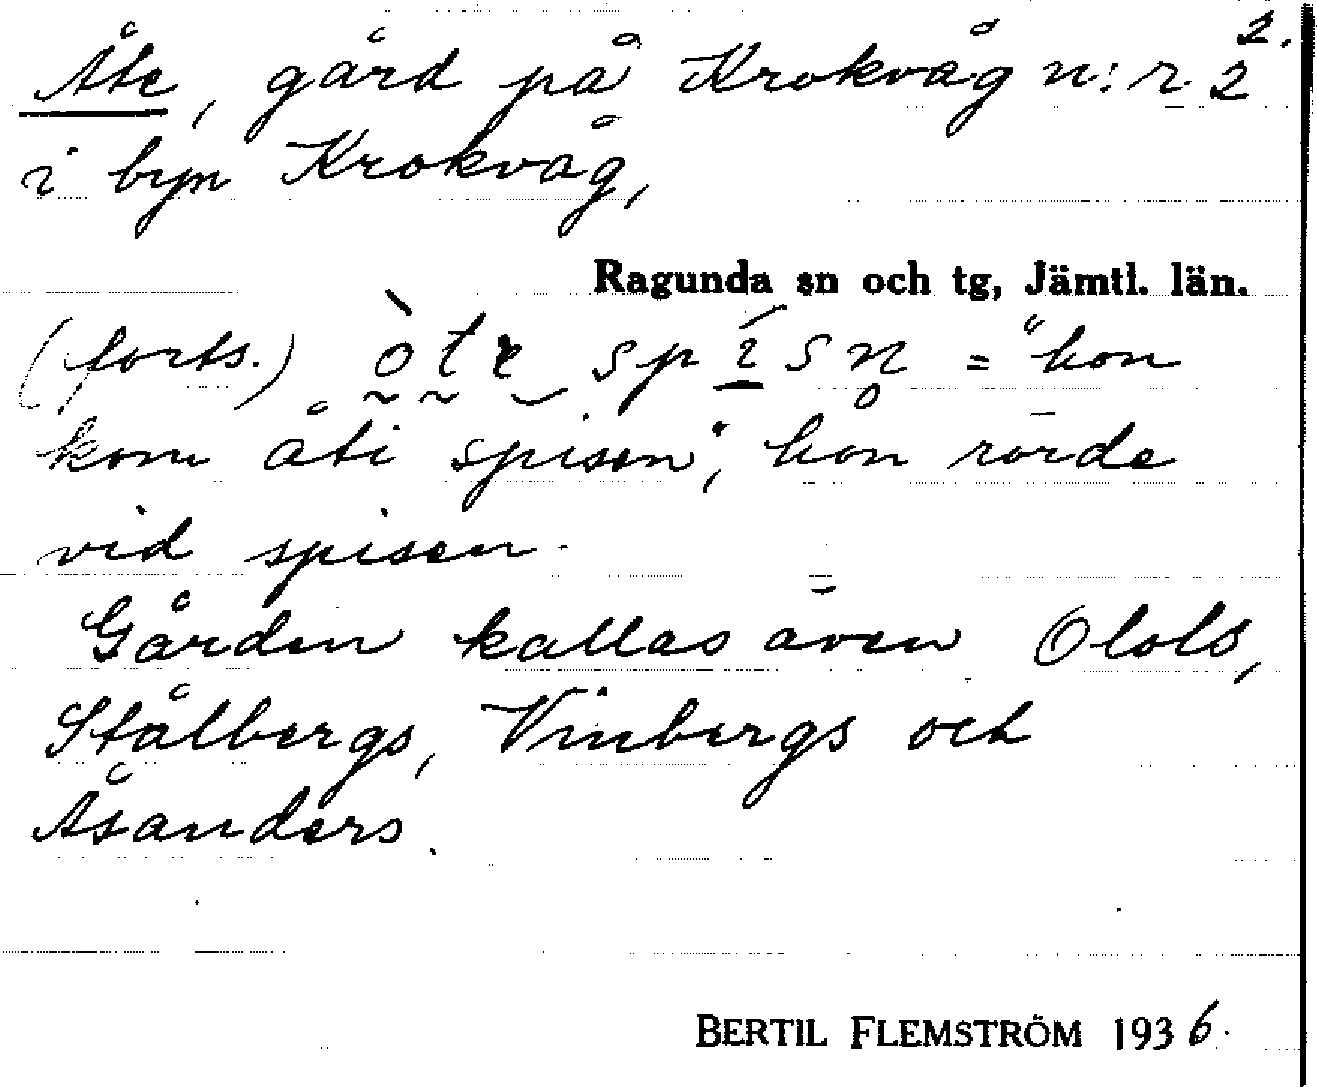 2.
Åte, gård på Krokvåg n:r 2
i byn Krokvåg,
Ragunda sn och tg, Jämtl. län.
(forts.) òte spísn = "hon
kom åti spisen", hon rörde
vid spisen.
Gården kallas även Olols,
Stålbergs, Vinbergs och
Åsanders.
BERTIL FLEMSTRÖM 1936.